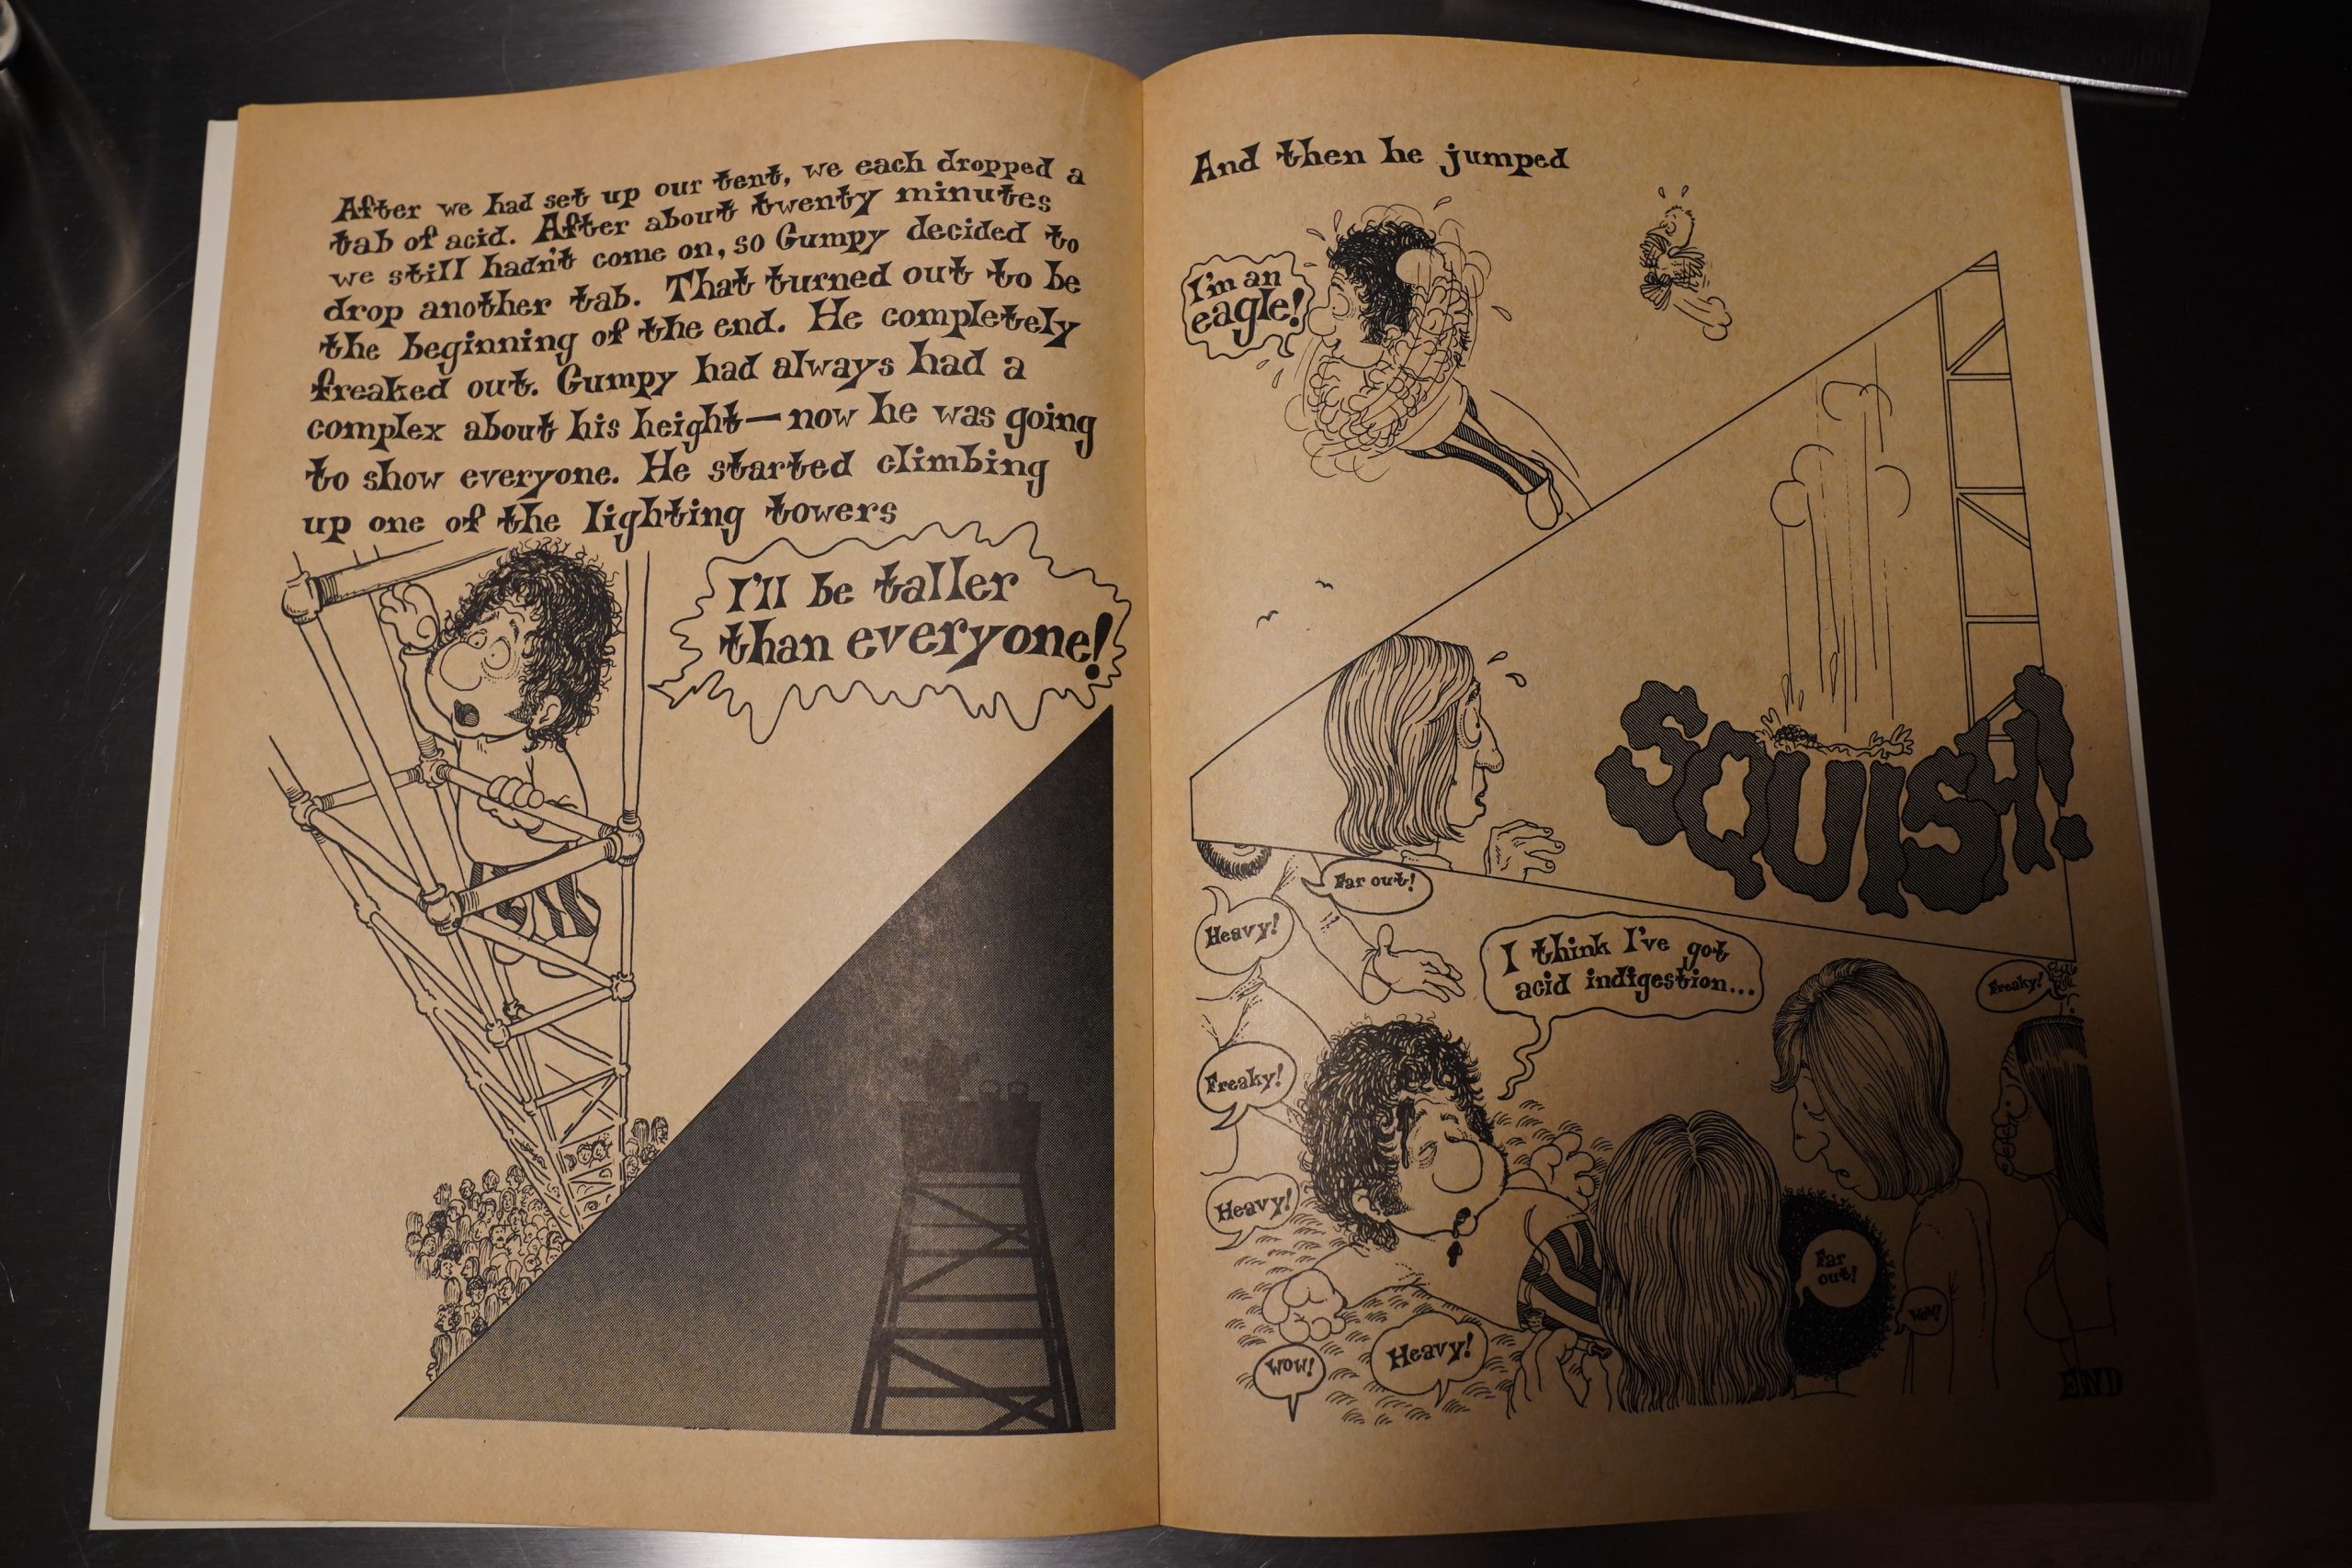 After we had set up our tent, we each dropped a
tab of acid. After about twenty minutes
we still hadn't come on, so Gumpy decided to
drop another tab. That turned out to be
the beginning of the end. He completely
freaked out. Gumpy had always had a
complex about his height—now he was going
to show everyone. He started climbing
up one of the lighting towers
I'll be taller
than everyone!
And then he jumped
I'm an
eagle!
SQUISH!
Far out!
Heavy!
I think I've got
acid indigestion...
Freaky!
Freaky!
Heavy!
Far
out!
Wow!
Heavy!
Wow!
END